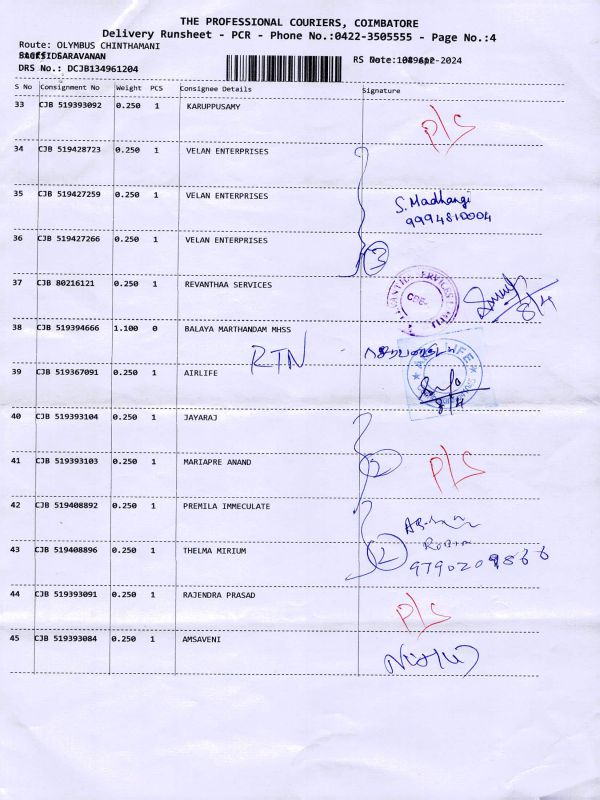 THE PROFESSIONAL COURIERS, COIMBATORE
Delivery Runsheet - PCR - Phone No.:0422-3505555 - Page No.:4
Route: OLYMBUS CHINTHAMANI
SARAVANAN
DRS No.: DCJB134961204
RS Date: -2024
S No Consignment No Weight PCS Consignee Details Signature
33 CJB 519393092 0.250 1 KARUPPUSAMY
P/S
34 CJB 519428723 0.250 1 VELAN ENTERPRISES
35 CJB 519427259 0.250 1 VELAN ENTERPRISES
S. Madhangi
9994810004
36 CJB 519427266 0.250 1 VELAN ENTERPRISES
3
37 CJB 80216121 0.250 1 REVANTHAA SERVICES
8/4
38 CJB 519394666 1.100 0 BALAYA MARTHANDAM MHSS
RTN
39 CJB 519367091 0.250 1 AIRLIFE
8/4
40 CJB 519393104 0.250 1 JAYARAJ
41 CJB 519393103 0.250 1 MARIAPRE ANAND
2
P/S
42 CJB 519408892 0.250 1 PREMILA IMMECULATE
43 CJB 519408896 0.250 1 THELMA MIRIUM
2
44 CJB 519393091 0.250 1 RAJENDRA PRASAD
P/S
45 CJB 519393084 0.250 1 AMSAVENI